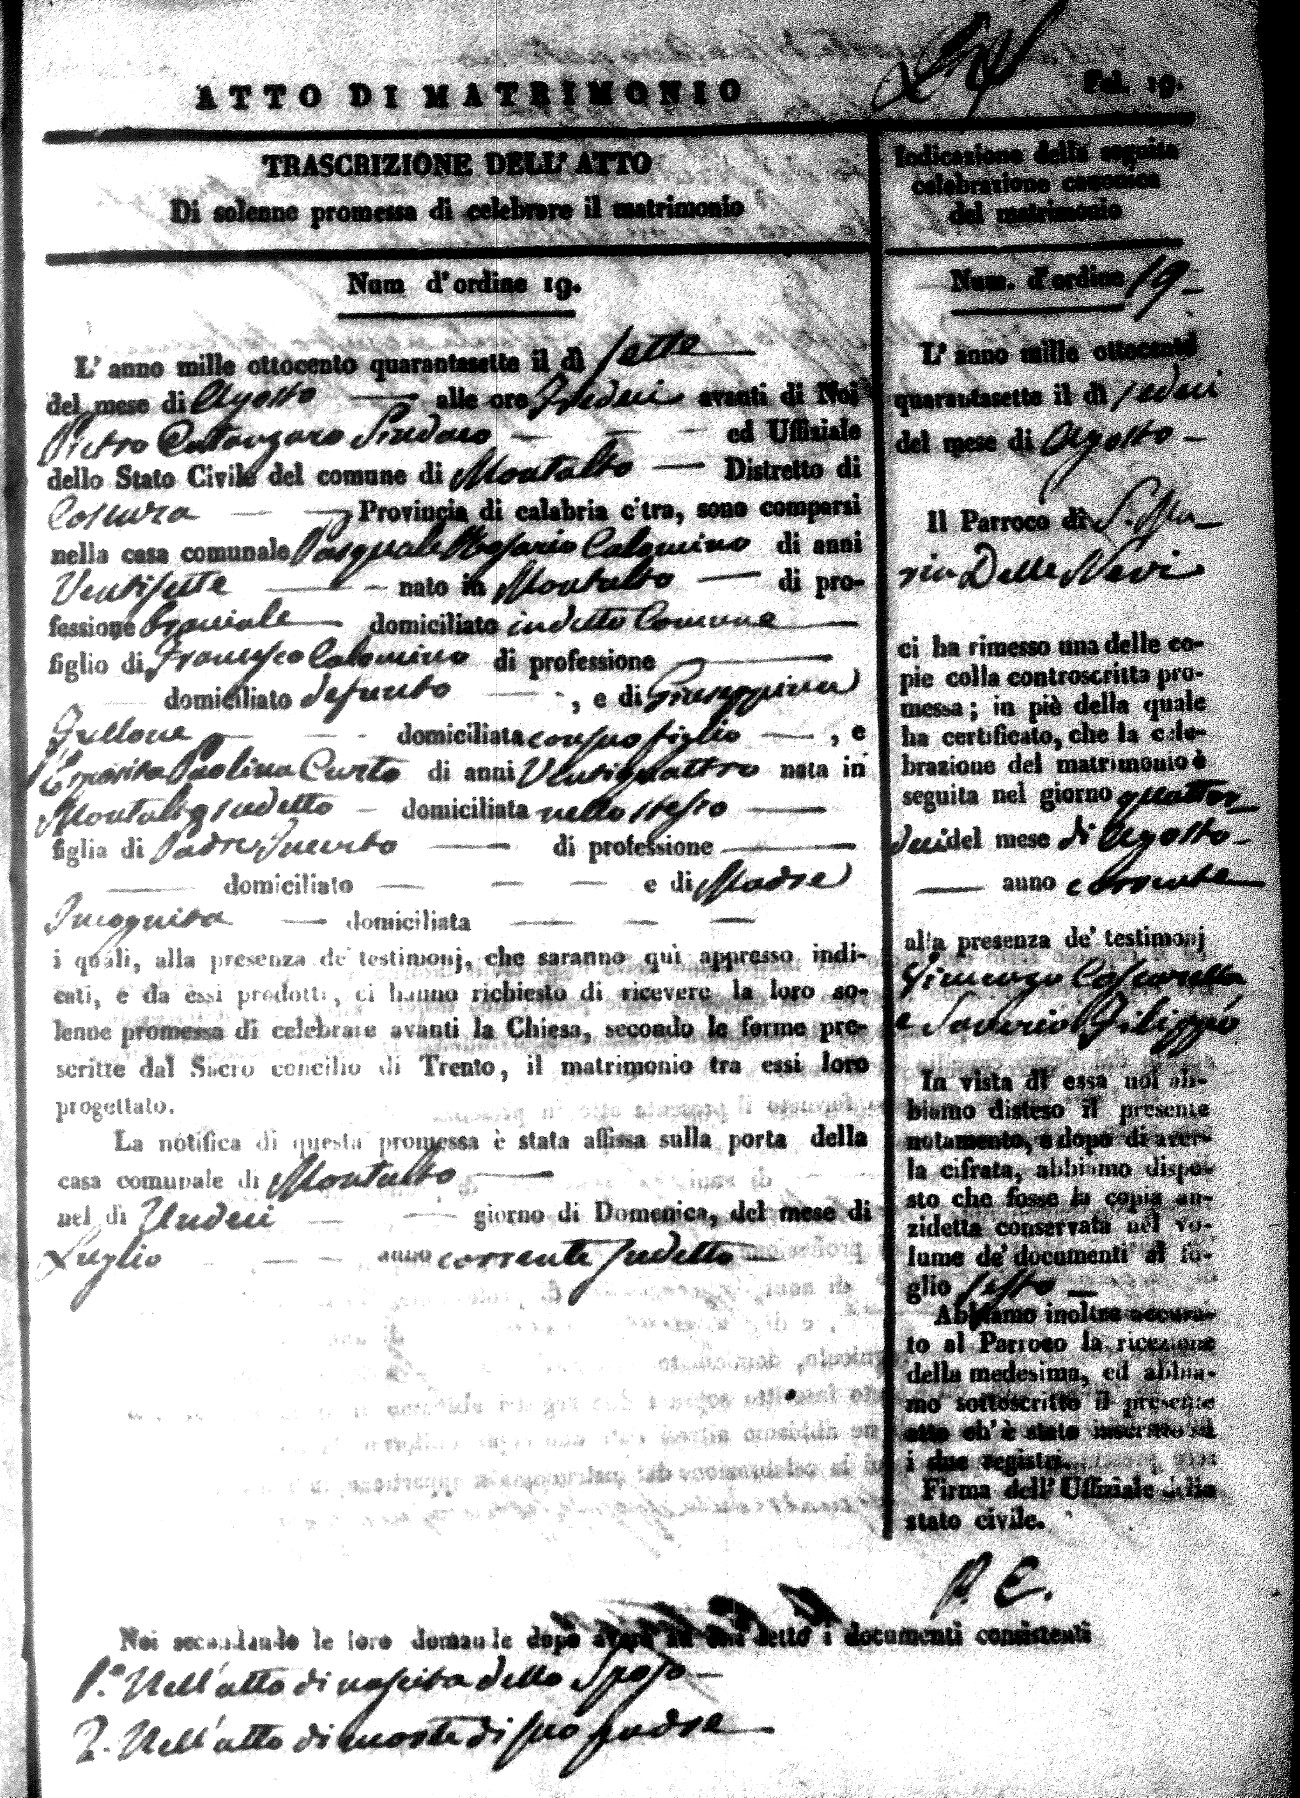 ATTO DI MATRIMONIO
Fol. 19.
TRASCRIZIONE DELL' ATTO
Di solenne promessa di celebrare il matrimonio
Num d'ordine 19.
L' anno mille ottocento quarantasette il dì sette
del mese di Agosto alle ore tredeci avanti di Noi
Pietro Catanzaro Sindaco ed Uffiziale
dello Stato Civile del comune di Montalto Distretto di
Cosenza Provincia di calabria citra, sono comparsi
nella casa comunale Pasquale Rosario Calomino di anni
Ventisette nato in Montalto di pro-
fessione domiciliato in detto Comune
figlio di Francesco Calomino di professione
domiciliato defunto , e di Giuseppina
domiciliata con suo figlio , e
Esposita Paolina Curto di anni Ventiquattro nata in
Montalto sudetto domiciliata nello stesso
figlia di Padre Incerto di professione
domiciliato e di Madre
Incognita domiciliata
i quali, alla presenza de' testimonj, che saranno quì appresso indi-
cati, e da essi prodotti, ci hanno richiesto di ricevere la loro so-
lenne promessa di celebrare avanti la Chiesa, secondo le forme pre-
scritte dal Sacro concilio di Trento, il matrimonio tra essi loro
progettato.
La notifica di questa promessa è stata affissa sulla porta della
casa comunale di Montalto
nel dì Undeci giorno di Domenica, del mese di
Luglio anno corrente sudetto
Indicazione della seguita
celebrazione canonica
del matrimonio
Num. d'ordine 19
L' anno mille ottocento
quarantasette il dì sedeci
del mese di Agosto
Il Parroco di S. Ma
ria Delle Nevi
ci ha rimesso una delle co-
pie colla controscritta pro-
messa; in piè della quale
ha certificato, che la cele-
brazione del matrimonio è
seguita nel giorno quattor
deci del mese di Agosto
anno corrente
alla presenza de' testimonj
Vincenzo Coscarella
e Saverio Filippo
In vista di essa noi ab-
biamo disteso il presente
notamento, e dopo di aver-
la cifrata, abbiamo dispo-
sto che fosse la copia an-
zidetta conservata nel vo-
lume de' documenti al fo-
glio sesto
Abbiamo inoltre accura-
to al Parroco la ricezione
della medesima, ed abbia-
mo sottoscritto il presente
atto ch' è stato inscritto su
i due registri.
Firma dell' Uffiziale dello
stato civile.
P. C.
Noi secondando le loro domande dopo aver ad essi letto i documenti consistenti
1.° Nell'atto di nascita dello Sposo
2. Nell'atto di morte di suo padre